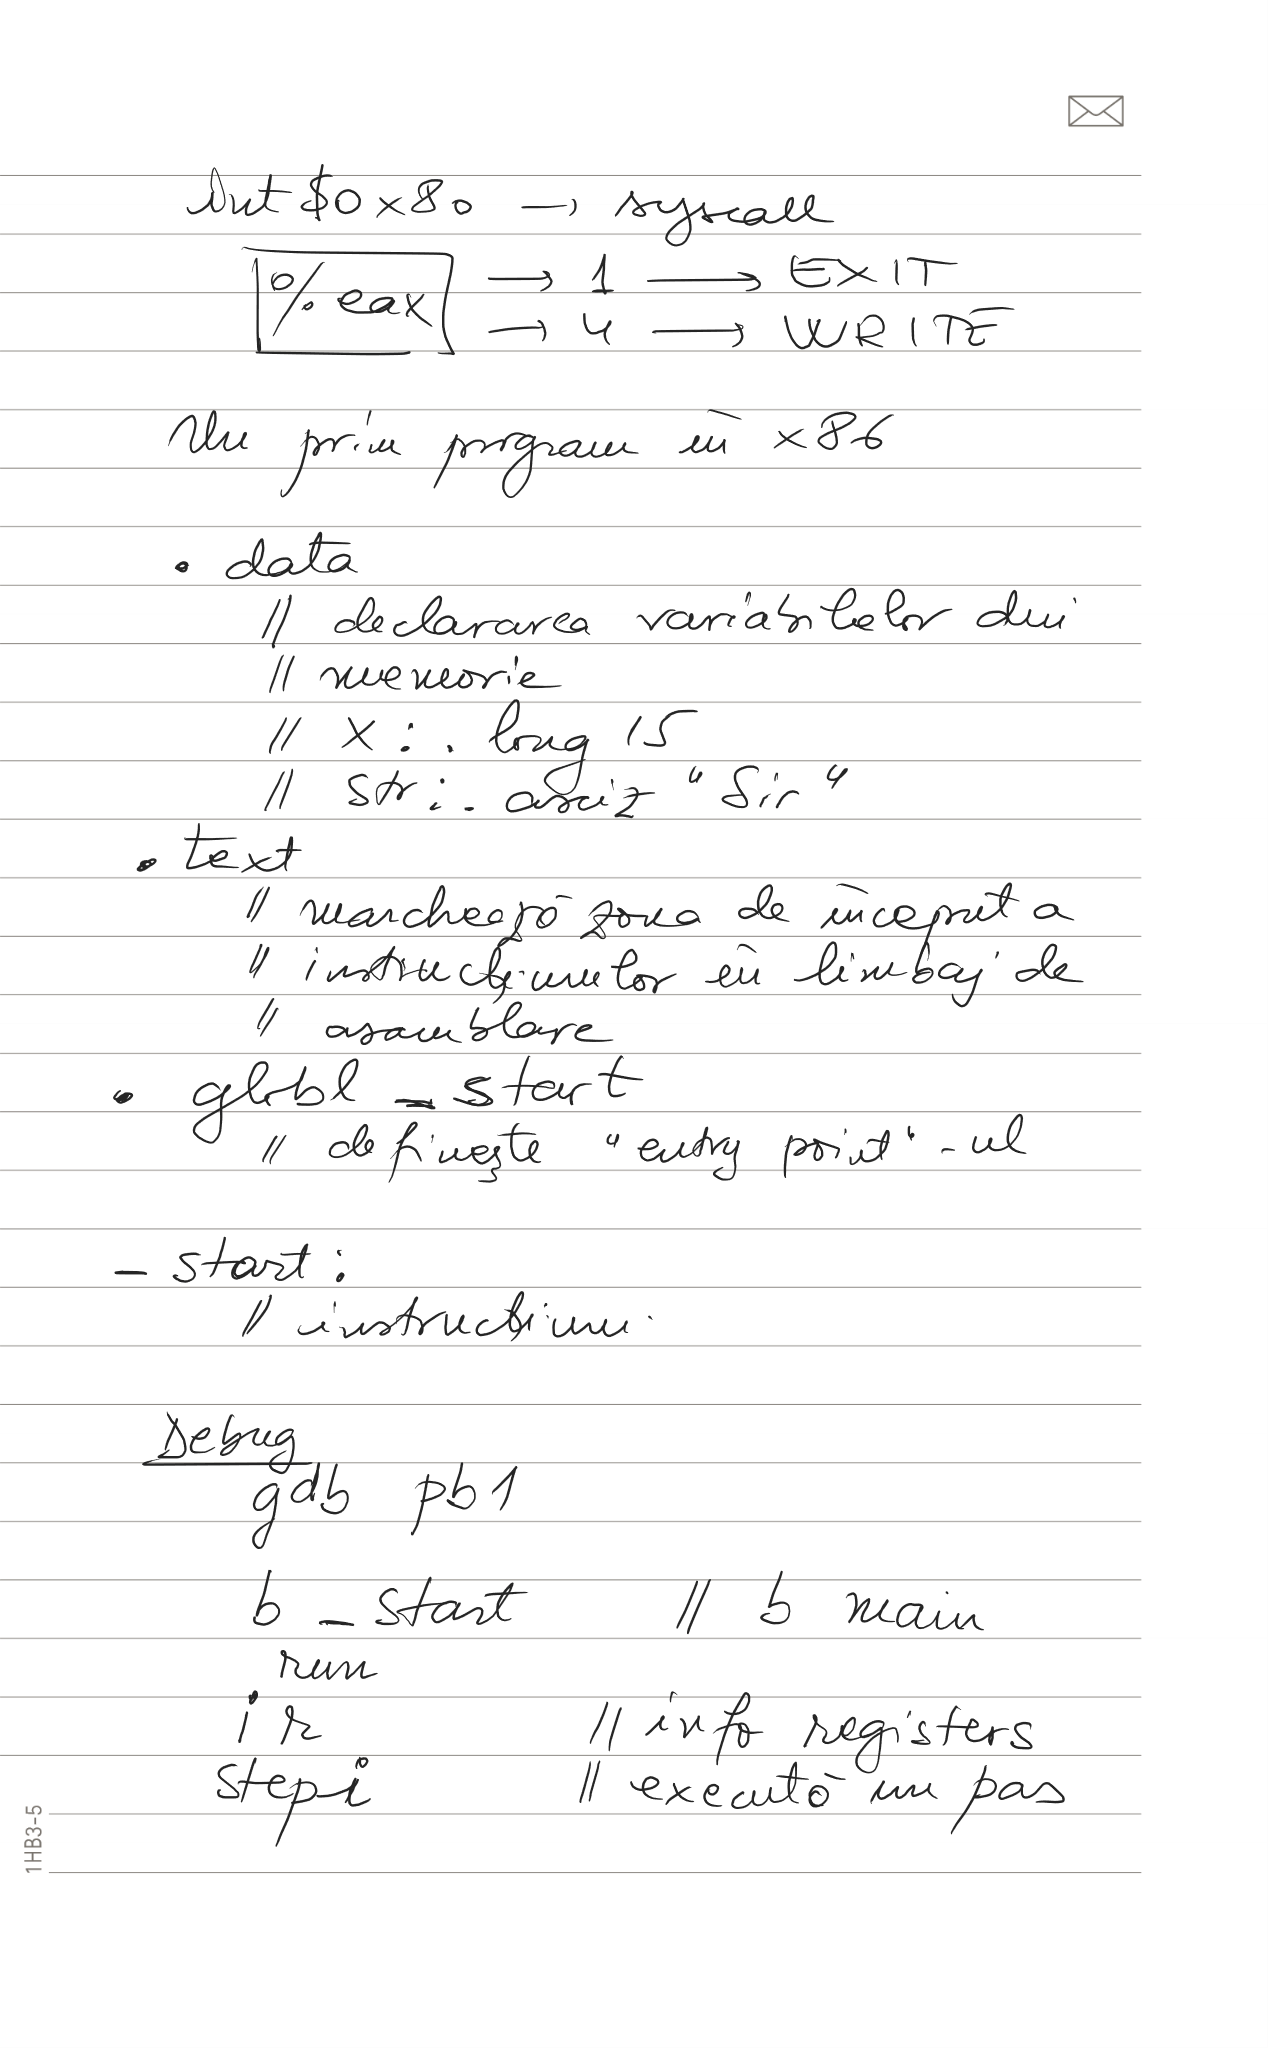 int $0x80 → syscall
%eax → 1 → EXIT
→ 4 → WRITE
Un prim program în x86
.data
// declararea variabilelor din
// memorie
// x: .long 15
// str: .asciz "Sir"
.text
// marchează zona de început a
// instrucțiunilor în limbaj de
// asamblare
.globl _start
// definește "entry point"-ul
_start:
// instrucțiuni
Debug
gdb pb1
b _start // b main
run
i r // info registers
stepi // execută un pas
1HB3-5